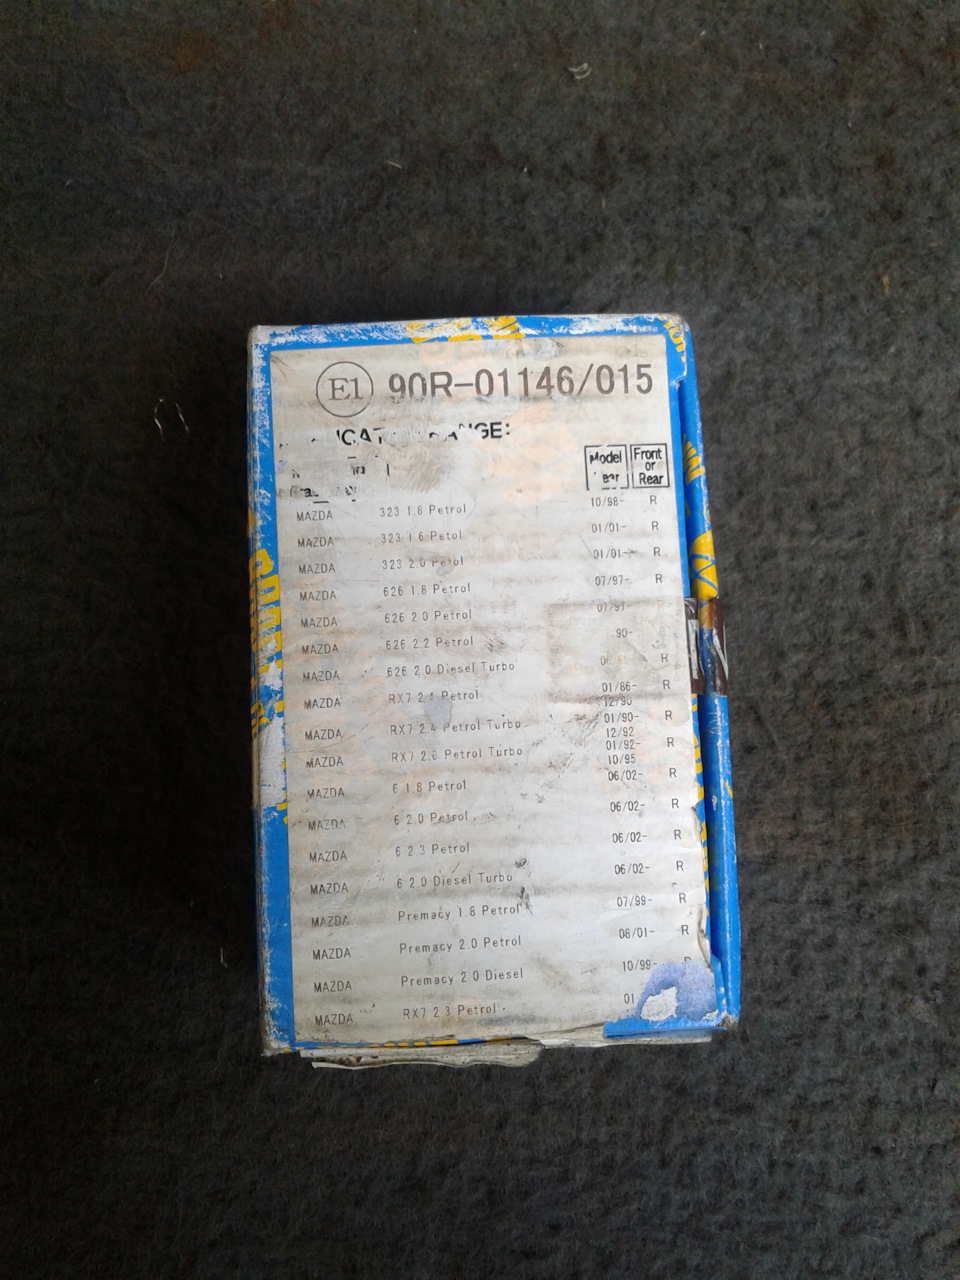 E1 90R-01146/015
Model Front
or
Rear
MAZDA 323 1.8 Petrol 10/98- R
MAZDA 323 1.6 Petol 01/01- R
MAZDA 323 2.0 Petol 01/01- R
MAZDA 626 1.8 Petrol 07/97- R
MAZDA 626 2.0 Petrol 07/97-
MAZDA 626 2.2 Petrol 90-
MAZDA 626 2.0 Diesel Turbo R
MAZDA RX7 2.4 Petrol 01/86- R
12/90
MAZDA RX7 2.4 Petrol Turbo 01/90- R
12/92
MAZDA RX7 2.6 Petrol Turbo 01/92- R
10/95
MAZDA 6 1.8 Petrol 06/02- R
MAZDA 6 2.0 Petrol 06/02- R
MAZDA 6 2.3 Petrol 06/02- R
MAZDA 6 2.0 Diesel Turbo 06/02- R
MAZDA Premacy 1.8 Petrol 07/99- R
MAZDA Premacy 2.0 Petrol 08/01- R
MAZDA Premacy 2.0 Diesel 10/99- R
MAZDA RX7 2.3 Petrol 01